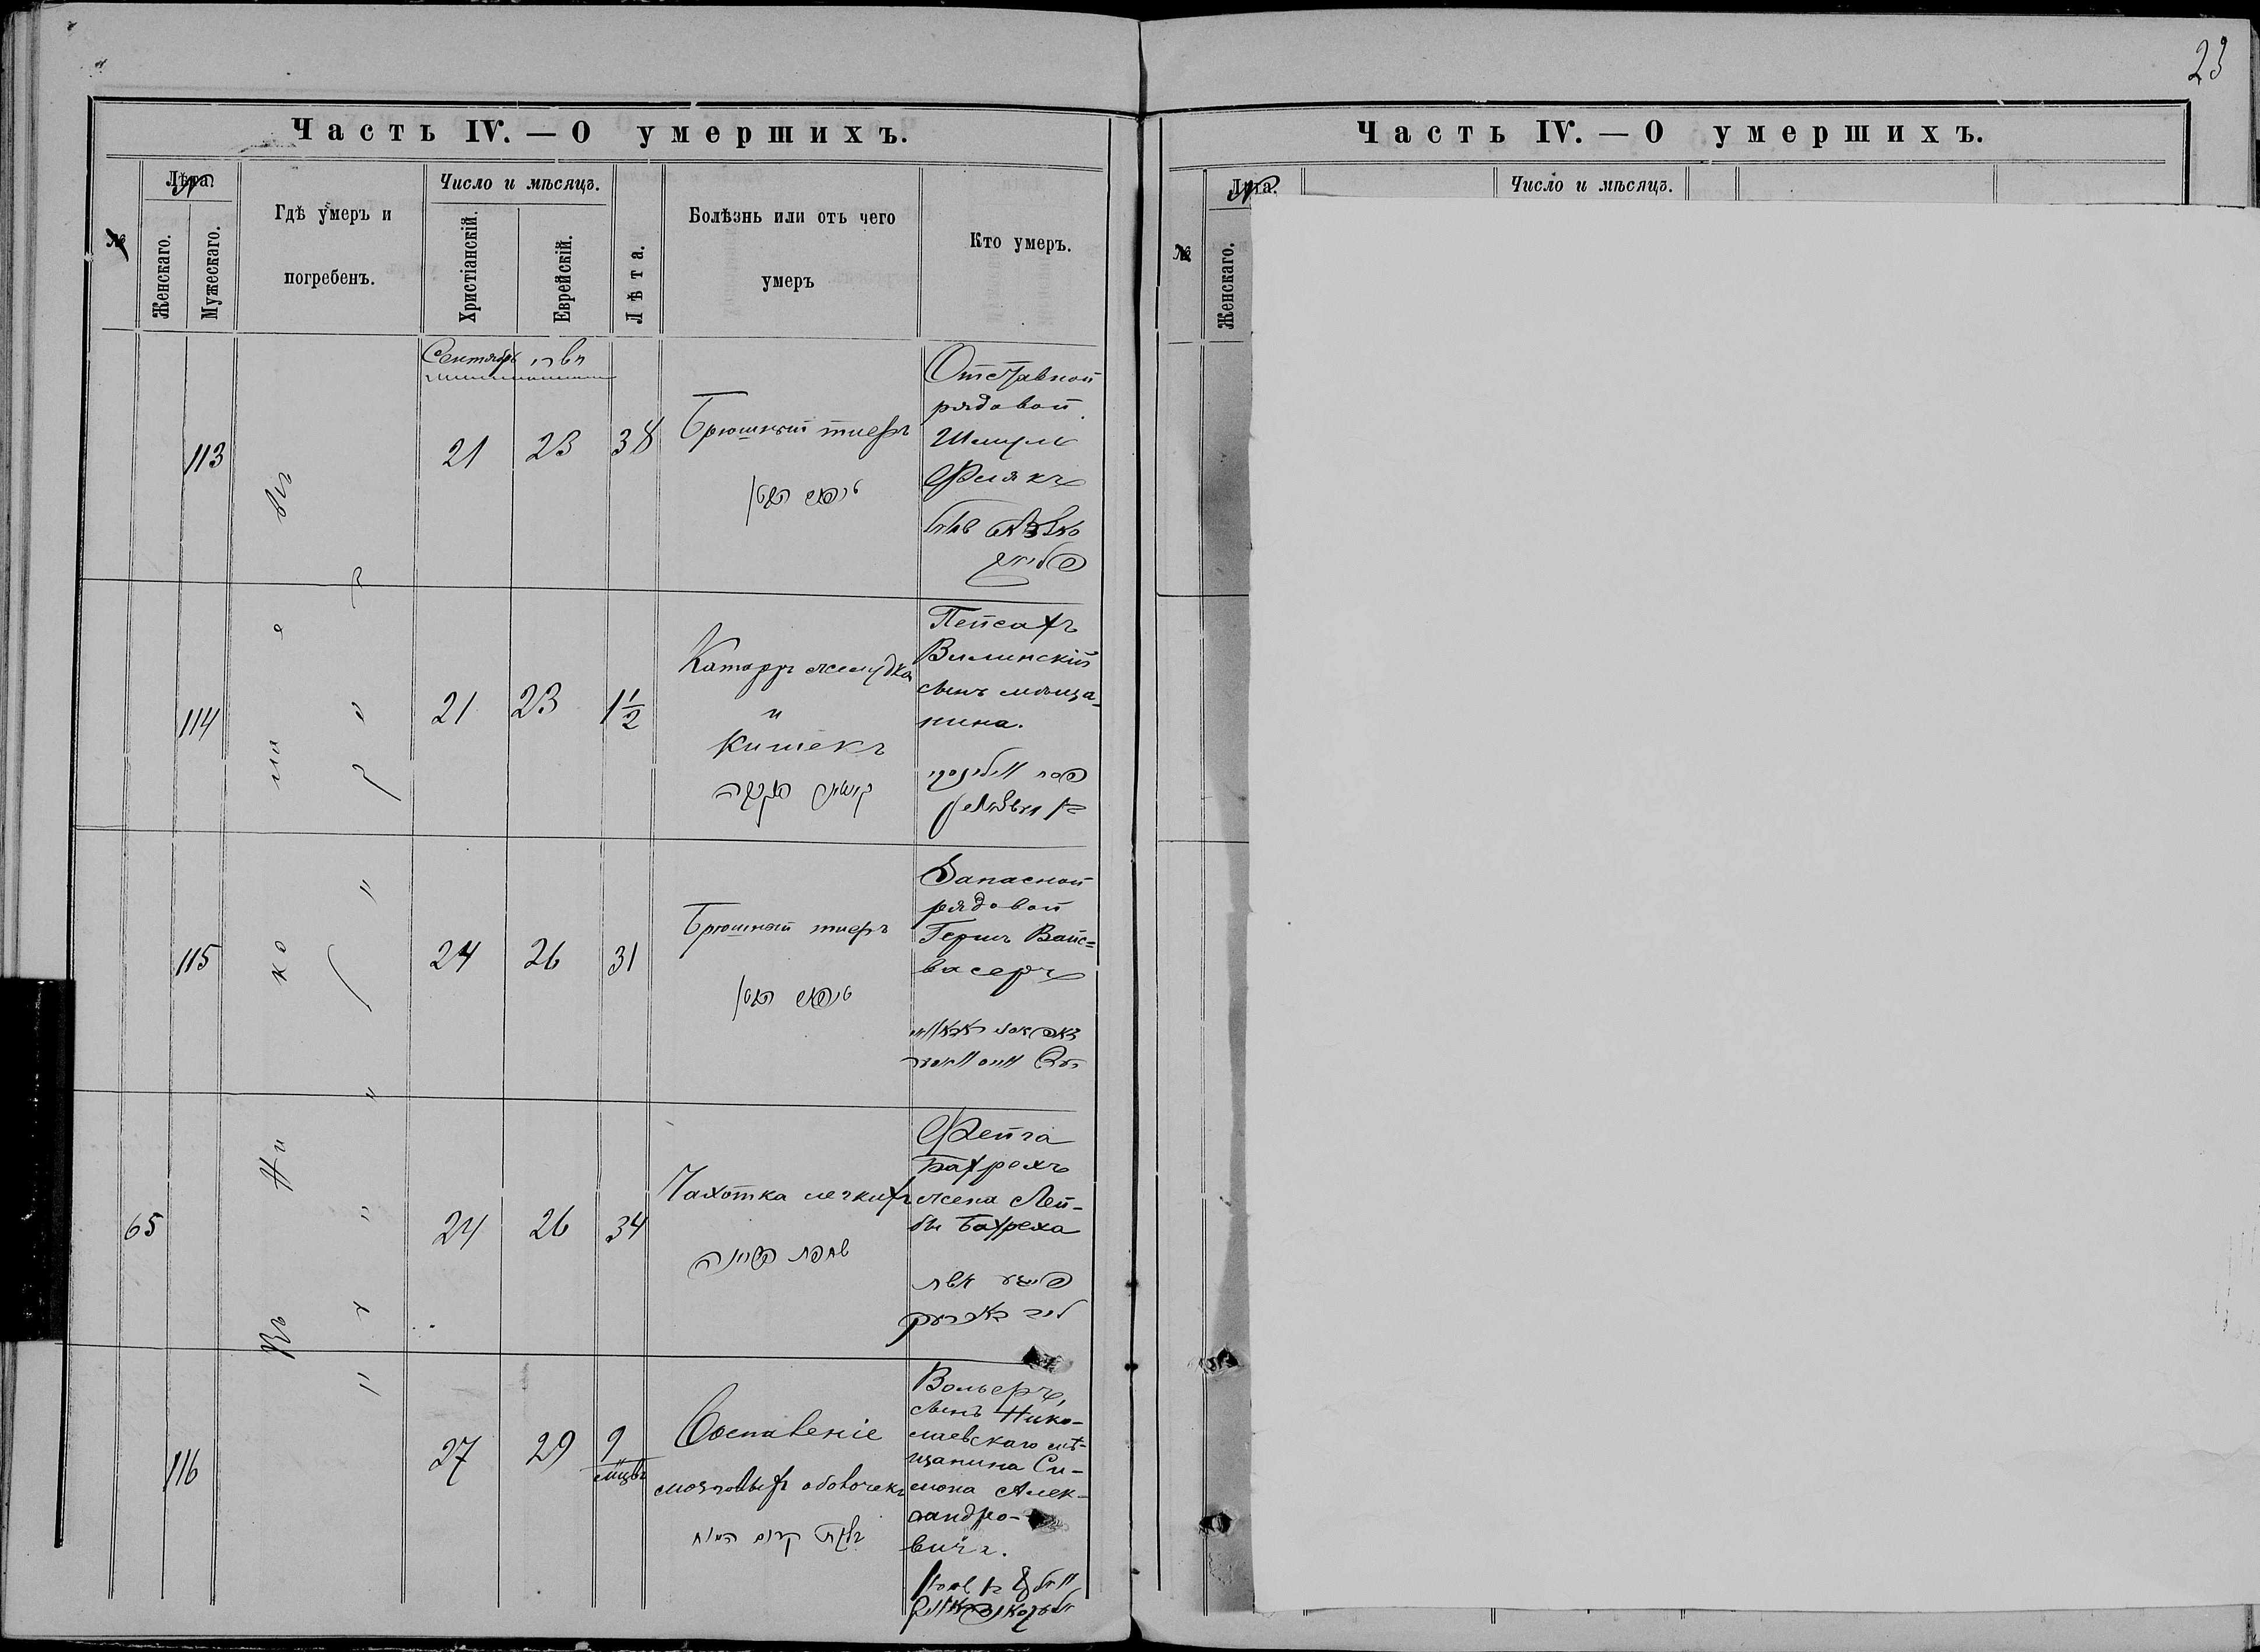 23
Часть IV. — О умершихъ.
№
Лѣта.
Женскаго.
Мужескаго.
Гдѣ умеръ и
погребенъ.
Число и мѣсяцъ.
Христіанскій.
Еврейскій.
Лѣта.
Болѣзнь или отъ чего
умеръ
Кто умеръ.
Сентябрь תשרי
113
21
23
38
Брюшный тифъ
טיפוס הבטן
Отставной
рядовой
Шмуль
Флякъ
114
21
23
1 1/2
Катарръ желудка
и
Кишекъ
Пейсахъ
Вилинскій
сынъ мѣща-
нина.
115
24
26
31
Брюшной тифъ
טיפוס הבטן
Запасной
рядовой
Гершъ Вайс=
васеръ
65
24
26
34
Чахотка легкихъ
שחפת הריאה
Фейга
Бахрехъ
жена Лей-
бы Бахреха
פייגע אשת
ליב באכרעך
116
27
29
9
мцвъ
Воспаленіе
мозговыхъ оболочекъ
דלקת קרום המוח
Вольфъ,
сынъ Нико-
лаевскаго мѣ-
щанина Си-
мона Алек-
сандро-
вича.
Въ Николаевѣ
Часть IV. — О умершихъ.
№
Лѣта.
Женскаго.
Число и мѣсяцъ.